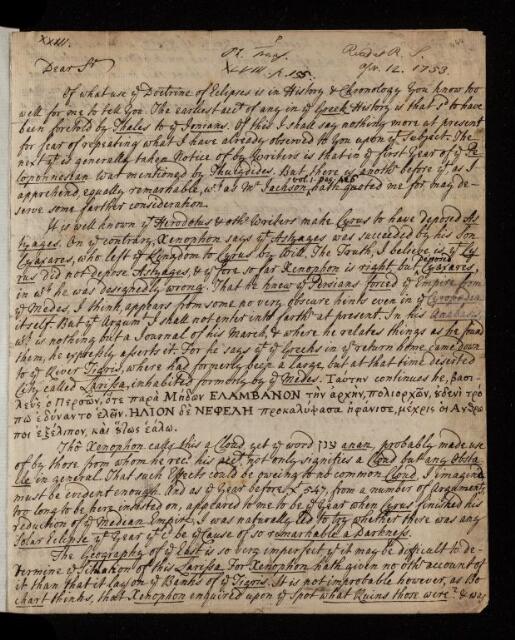 XXIII.
Ph. Trans.
XLVIII. p. 155.
Read at R. S.
Apr. 12. 1753
Dear Sr
Of what use ye Doctrine of Eclipses is in History & Chronology You know too
well for me to tell You. The earliest acct of any in ye Greek History is that sd to have
been foretold by Thales to ye Ionians. Of this I shall say nothing more at present
for fear of repeating what I have already observed to You upon yt Subject. The
next yt is generally taken Notice of by Writers is that in ye first Year of ye Pe
loponnesian War mentioned by Thucydides. But there is anothr before yt, as I
apprehend, equally remarkable, wch as Mr Jackson hath quoted me for may de-
serve some farther consideration.
It is well known yt Herodotus & othr Writers make Cyrus to have deposed As
tyages. On ye contrary Xenophon says yt Astyages was succeeded by his Son
Cyaxares, who left ye Kingdom to Cyrus by Will. The Truth, I believe is yt Cy
rus did not depose Astyages, & yt so far Xenophon is right, but deposed Cyaxares
in wch he was designedly wrong. That he knew ye Persians forced ye Empire from
ye Medes, I think, appears from some no very obscure hints even in ye Cyropædia
itself. But yt Argumt I shall not enter into farthr at present. In his Anabasis,
wch is nothing but a Journal of his March, & where he relates things as he found
them, he expresly asserts it. For he says yt ye Greeks in ye return home came down
to ye River Tigris, where had formerly been a large, but at that time deserted
City called Larissa, inhabited formerly by ye Medes. Ταυτην continues he, βασι-
λευς ο Περσων, οτε παρα Μηδων ΕΛΑΜΒΑΝΟΝ την αρχην, πολιορκων, ουδενι τρο
πω εδυνατο ελειν. ΗΛΙΟΝ δε ΝΕΦΕΛΗ προκαλυψασα ηφανισε, μεχρις οι Ανθρω
ποι εξελιπον, και ουτως εαλω.
Tho' Xenophon calls this a Cloud yet ye word ענן anan, probably made use
of by those from whom he recd his acct, not only signifies a Cloud but any Obsta-
cle in general. That such Effects could be oweing to no common Cloud, I imagine
must be evident enough. And as ye Year before X 547, from a number of Arguments
too long to be here insisted on, appeared to me to be ye Year when Cyrus finished his
reduction of ye Median Empire, I was naturally led to try whether there was any
Solar Eclipse yt Year yt cd be ye Cause of so remarkable a Darkness.
The Geography of ye East is so very imperfect yt it may be difficult to de-
termine ye Situation of this Larissa. For Xenophon hath given no othr account of
it than that it lay on ye Banks of ye Tigris. It is not improbable however, as Bo
chart thinks, that Xenophon enquired upon ye Spot what Ruins those were? & was